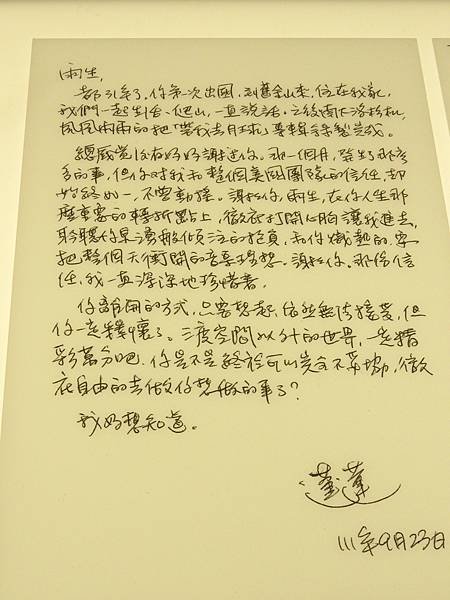 雨生,
一都31年了, 你第一次出國, 到舊金山來, 住在我家,
我們一起生活、爬山, 一直說話. 之後南下洛杉机,
風風雨雨的把「帶我去月球」專輯錄製完成。
總感覺沒有好好謝過你。那一個月, 發生了那麼
多的事, 但你對我和整個美國團隊的信任, 卻
始終如一, 不曾動搖。謝謝你, 雨生, 在你人生那
麼重要的轉折點上, 徹底打開心胸讓我進去,
聆聽你般傾注的抱負, 和你熾熱的, 要
把整個天衝開的音樂理想。謝謝你。那份信
任, 我一直深深地珍惜著。
你離開的方式, 只要想起, 依然無法接受, 但
你一定釋懷了。三度空間以外的世界, 一定精
彩萬分吧. 你是不是終於可以完全不妥協, 徹
底自由的去做你想做的事了?
我好想知道。
111年9月23日